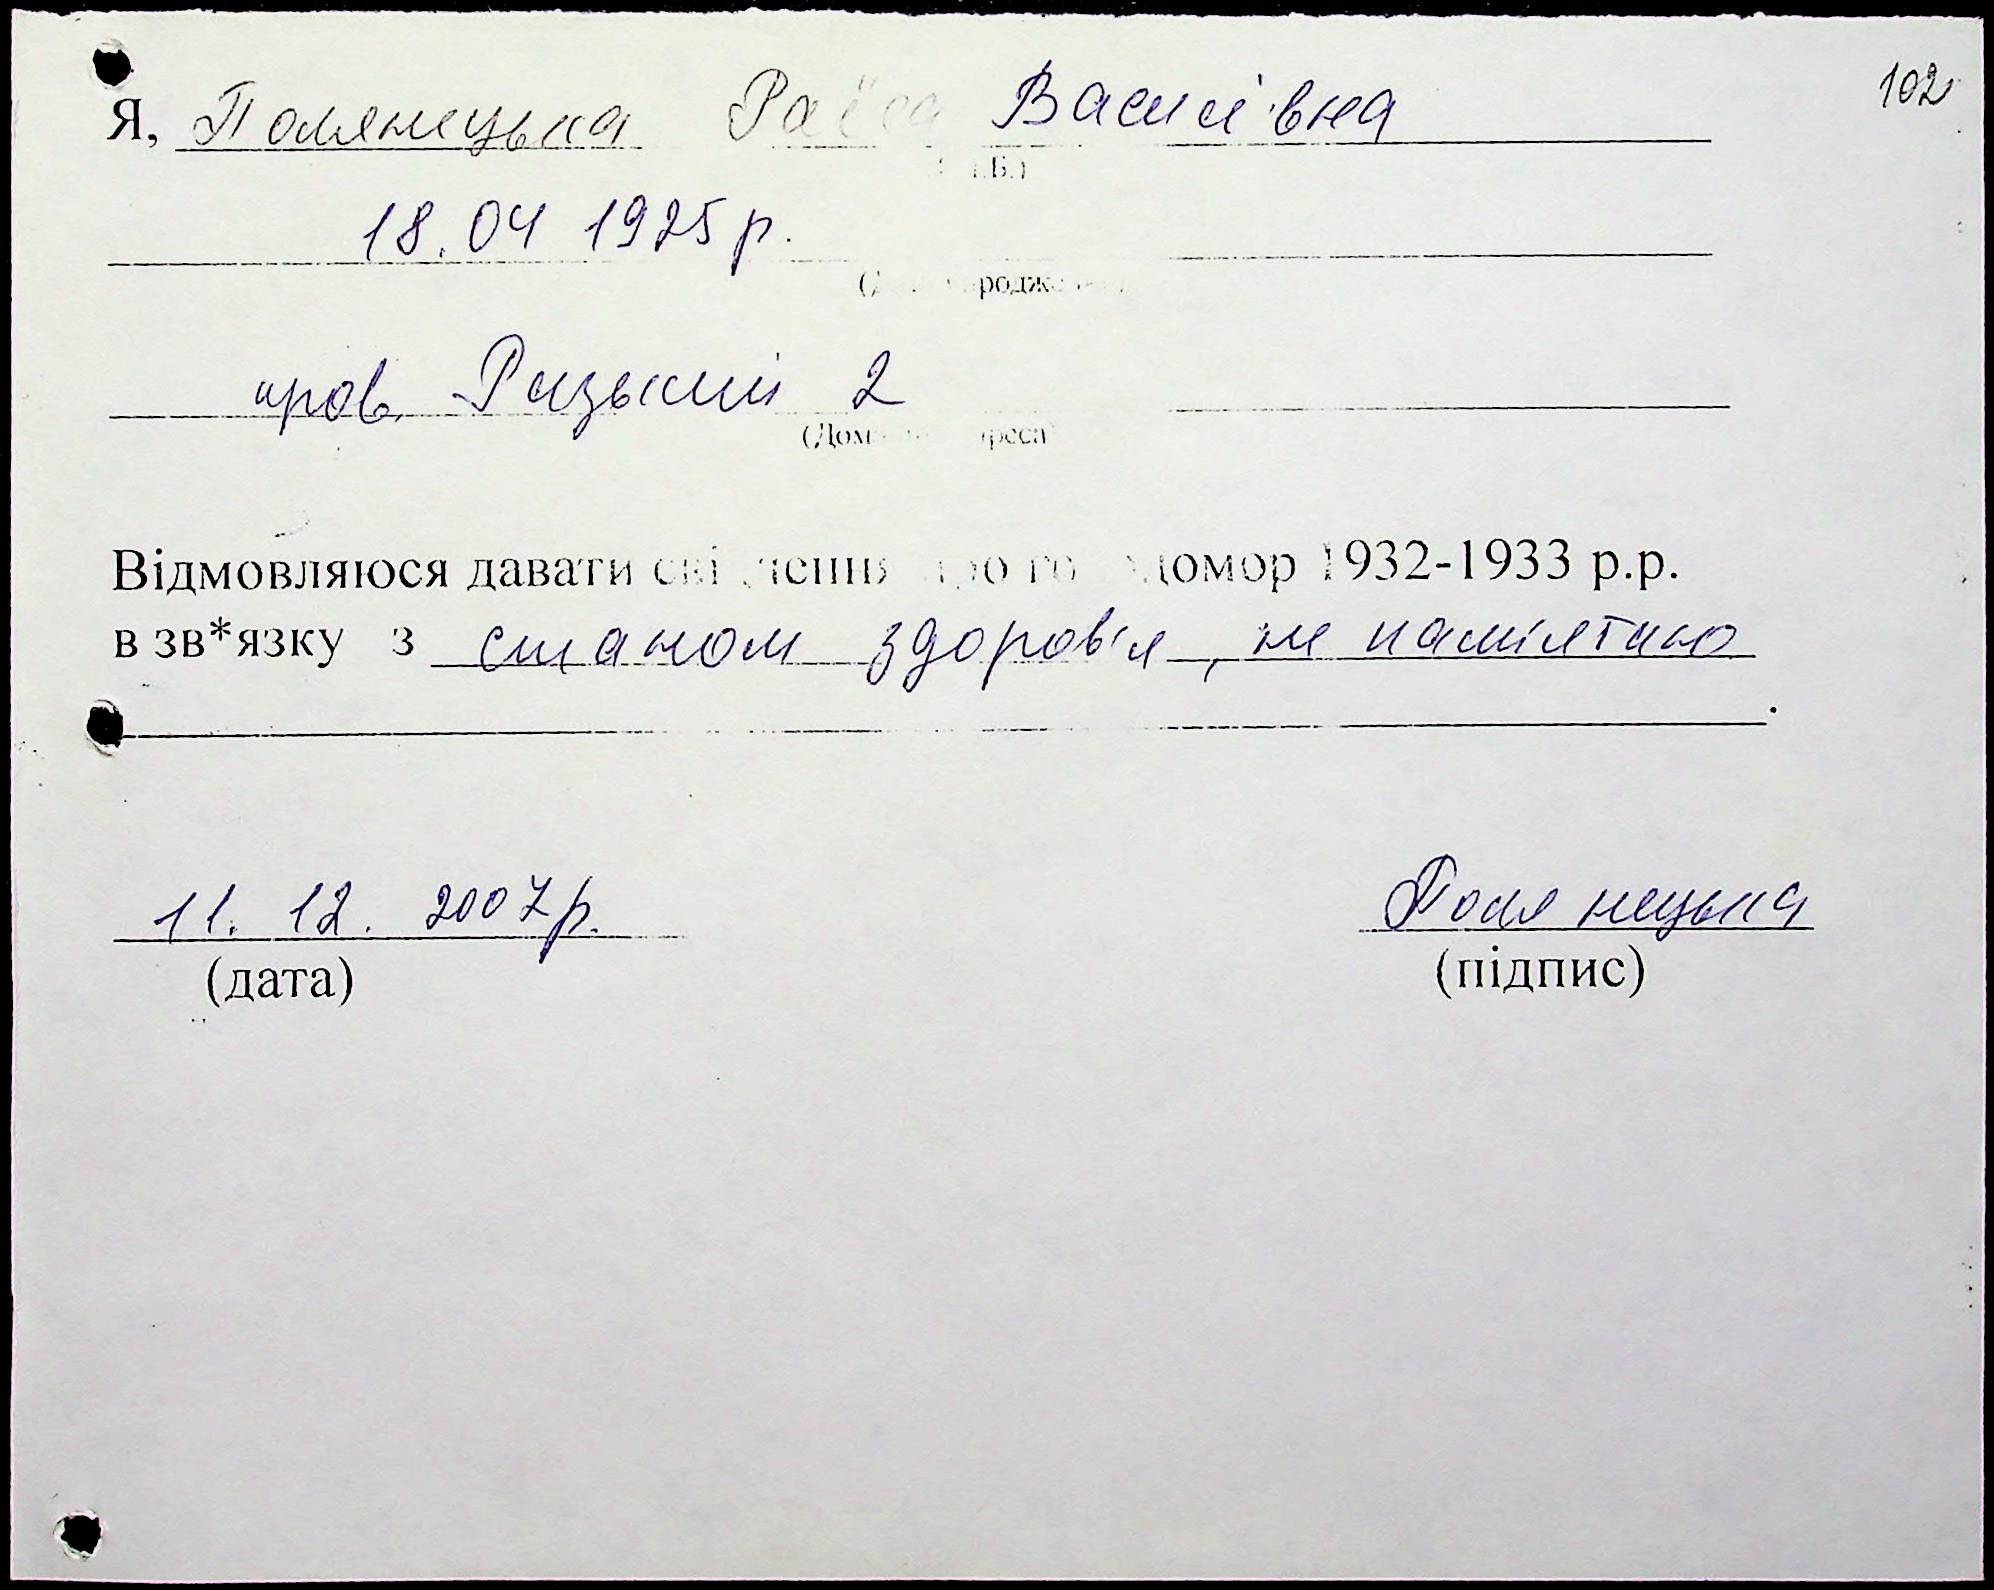 102
Я, Полянецька Раїса Василівна
18.04 1925 р.
(Дата народження)
пров. Ризький 2
(Домашня адреса)
Відмовляюся давати свідчення про голодомор 1932-1933 р.р.
в зв*язку з станом здоров'я, не памʼятаю
.
11. 12. 2007р. Полянецька
(дата) (підпис)